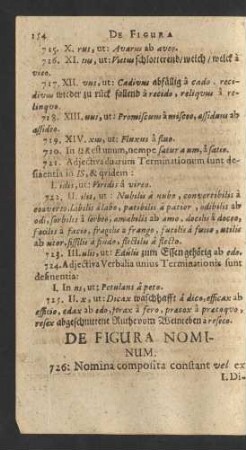 154 DE FIGURA
715. X. rus, ut: Avarus ab aveo.
716. XI. tus, ut: Vietus schlotterend/welch/welck à
vieo.
717. XII. vus, ut: Cadivus abfällig à cado. reci-
divus wieder zu rück fallend à recido, reliquus à re-
linquo.
718. XIII. uus, ut: Promiscuus à misceo, assiduus ab
assideo.
719. XIV. xus, ut: Fluxus à fluo.
720. In UR est unum, nempe satur a um, à satio.
721. Adjectiva duarum Terminationum sunt de-
sinentia in IS, & qvidem:
I. idis, ut: Viridis à vireo.
722. II. ilis, ut: Nubilis à nubo, convertibilis à
converto. Labilis à labo, patibilis à patior, odibilis ab
odi, sorbilis à sorbeo, amabilis ab amo, docilis à doceo,
facilis à facio, fragilis à frango, futilis à fuso, utilis
ab utor, fissilis à findo, flectilis à flecto.
723. III. ulis, ut: Edulis zum Essen gehörig ab edo.
724. Adjectiva Verbalia unius Terminationis sunt
desinentia:
I. In ns, ut: Petulans à peto.
725. II. x, ut: Dicax wäschhafft à dico, efficax ab
efficio, edax ab edo, ferax à fero, præcox à præcoquo,
resex abgeschnittene Ruthe von Weinreben à reseco.
DE FIGURA NOMI-
NUM.
726: Nomina composita constant vel ex
I. Di-